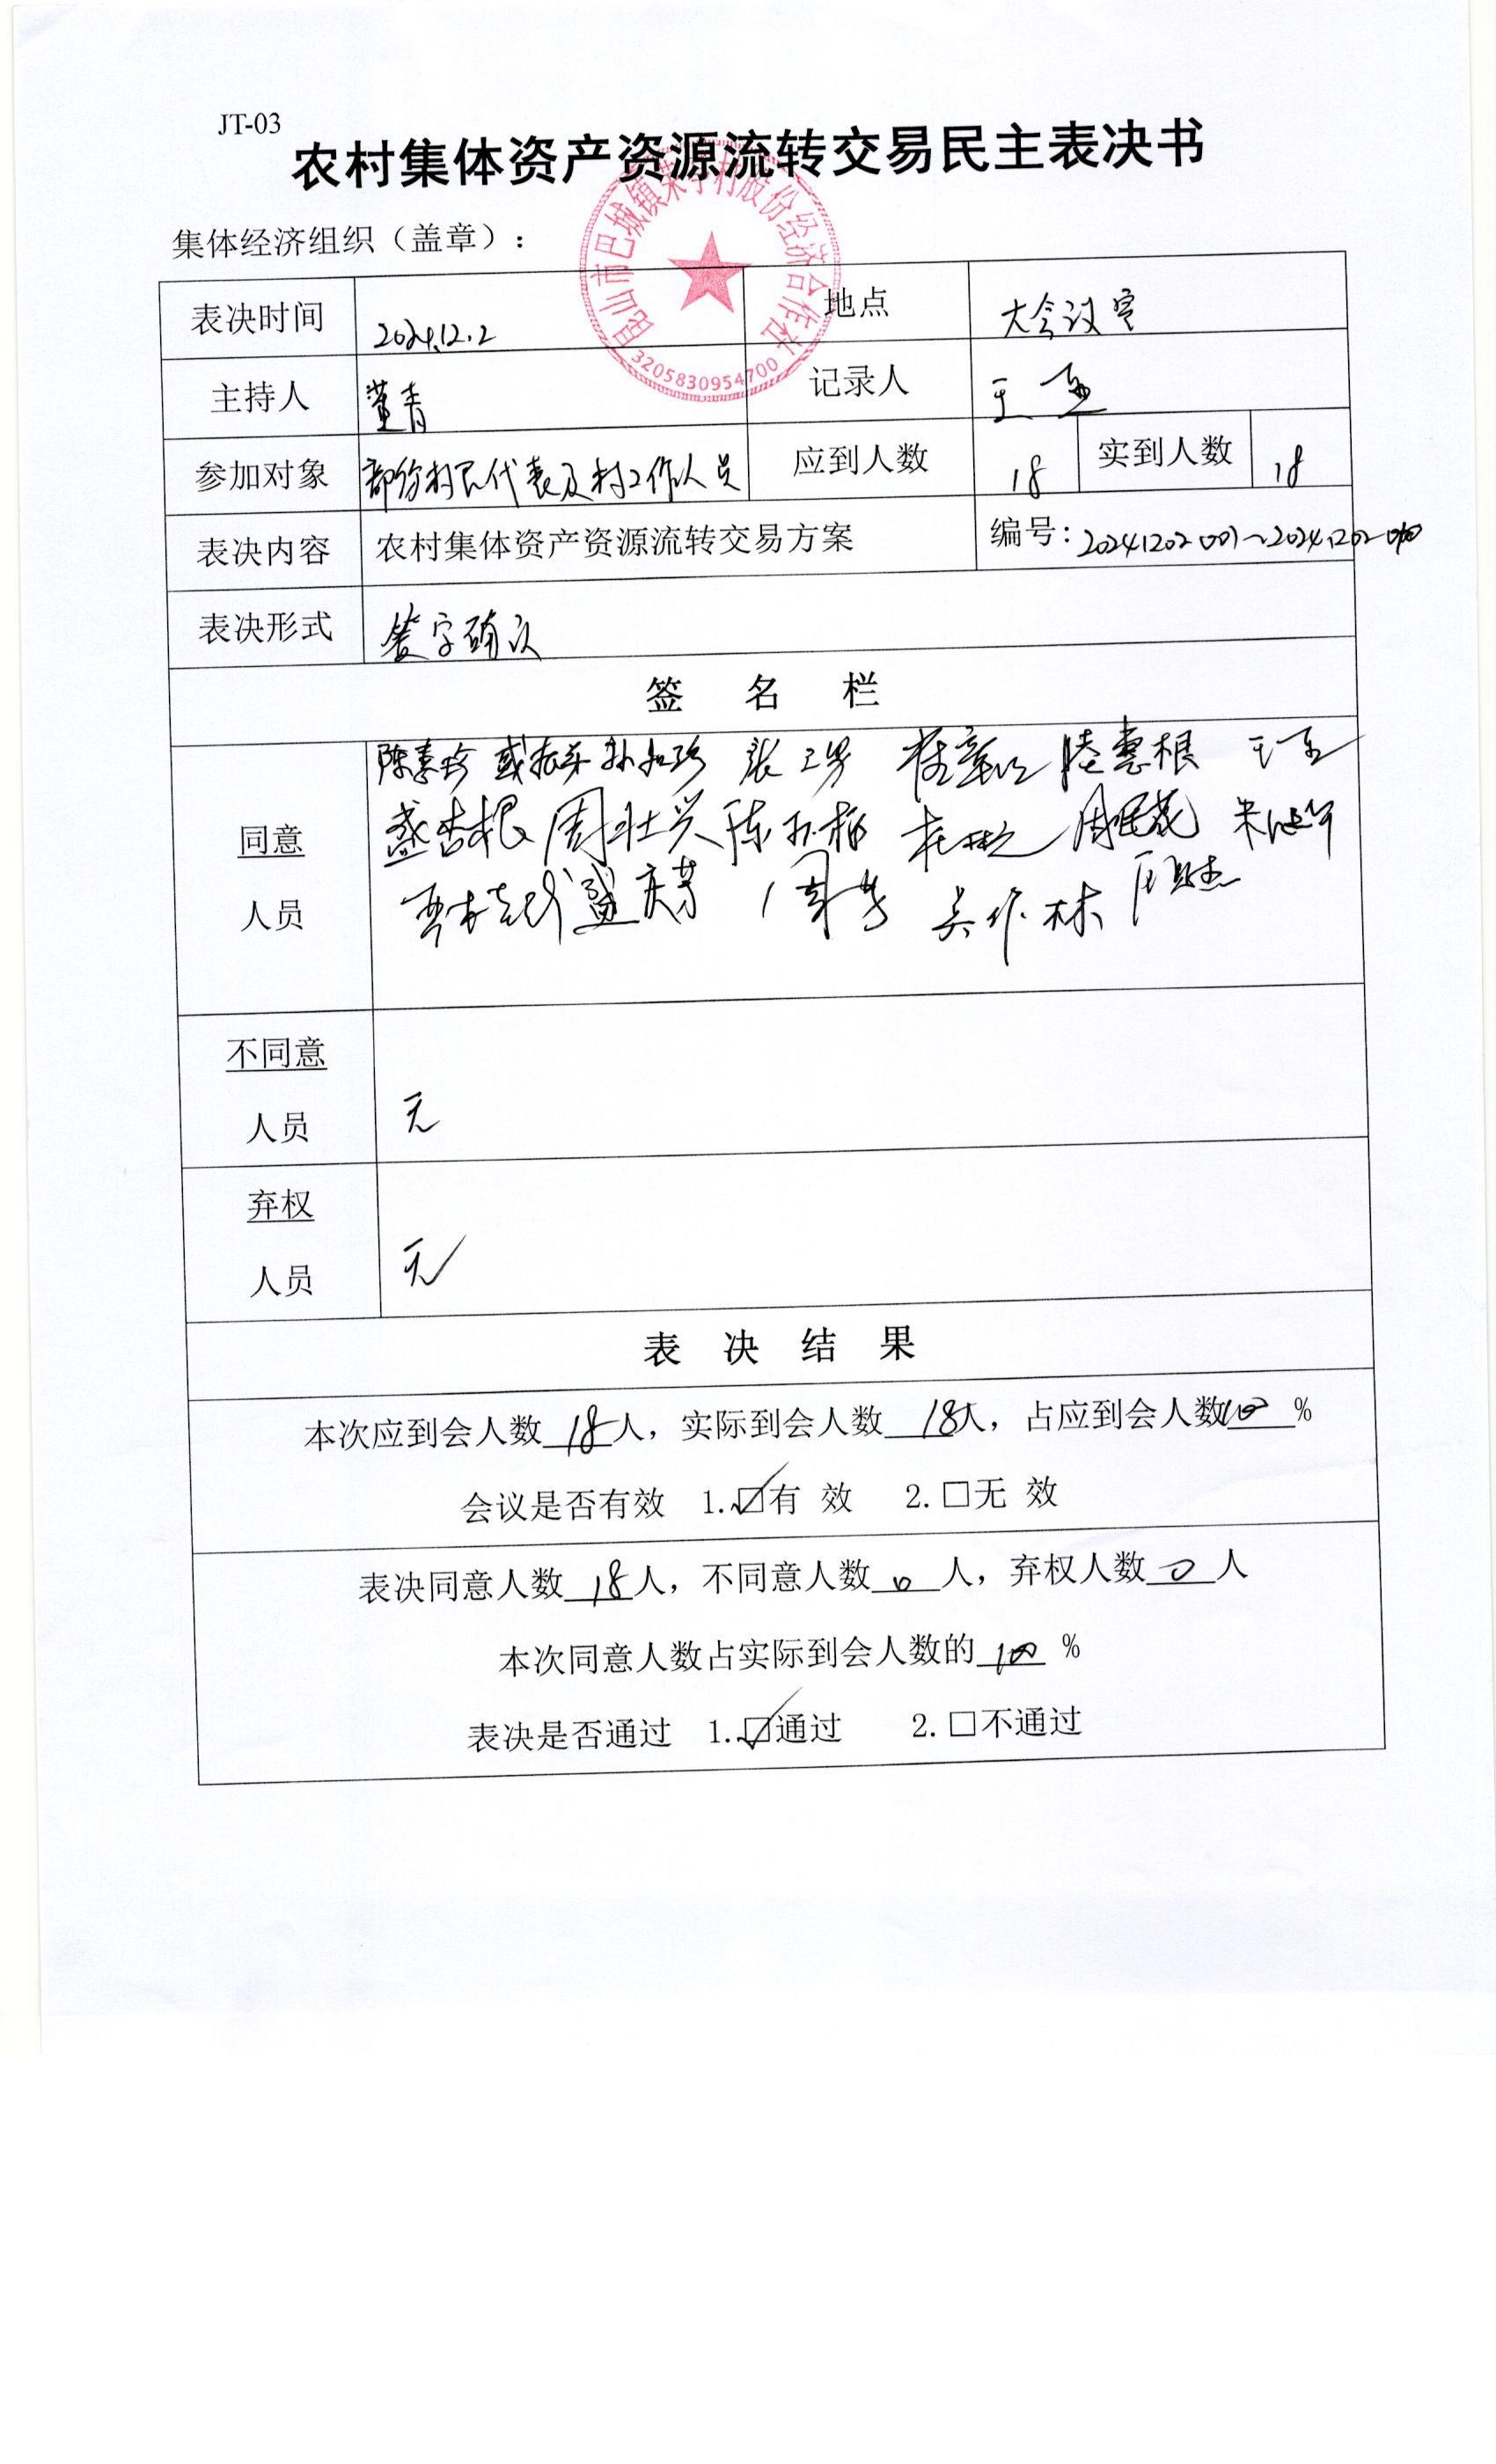 JT-03
农村集体资产资源流转交易民主表决书
集体经济组织（盖章）：
昆山市巴城镇 村股份经济合作社
3205830954700
表决时间 2024.12.2 地点 大会议室
主持人 董青 记录人 王
参加对象 部份村民代表及村工作人员 应到人数 18 实到人数 18
表决内容 农村集体资产资源流转交易方案 编号：20241202001～20241202
表决形式 签字确认
签 名 栏
同意
人员
陈素珍 孙 张 陆惠根 王
盛杏根 周壮兴 陈 周 朱
盛 周 吴 林
不同意
人员
无
弃权
人员
无
表 决 结 果
本次应到会人数 18 人，实际到会人数 18 人，占应到会人数 100 %
会议是否有效 1.☑有 效 2.□无 效
表决同意人数 18 人，不同意人数 0 人，弃权人数 0 人
本次同意人数占实际到会人数的 100 %
表决是否通过 1.☑通过 2.□不通过